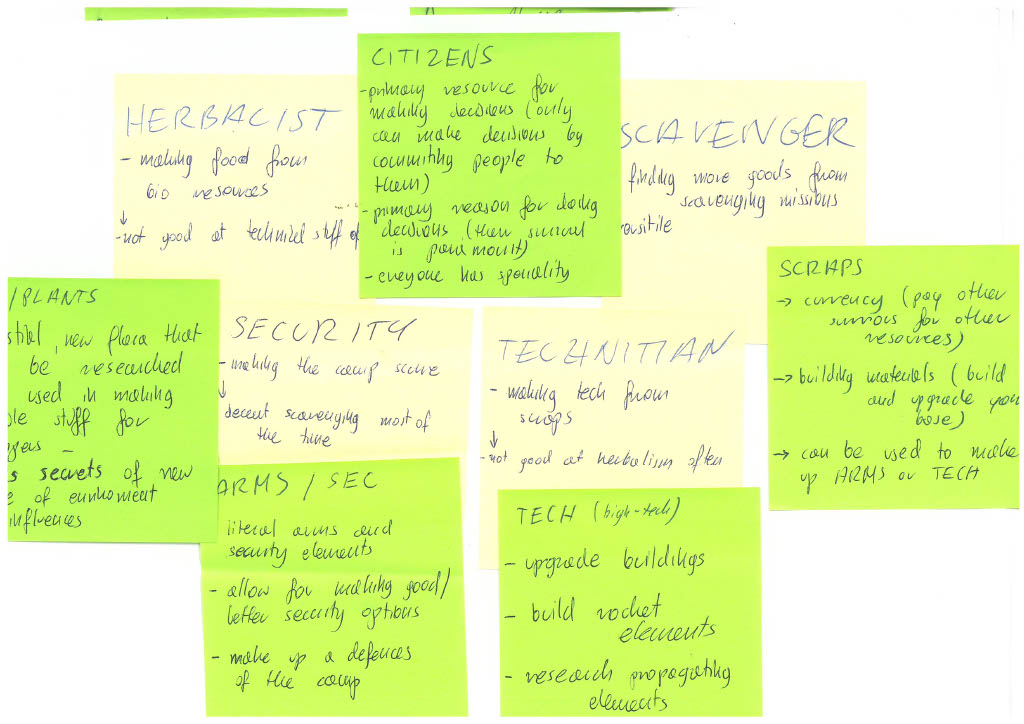 CITIZENS
- primary resource for
making decisions (only
can make decisions by
commiting people to
them)
- primary reason for doing
decisions (their survival
is paramount)
- everyone has speciality
HERBALIST
- making food from
bio resources
↓
- not good at technical stuff
SCAVENGER
finding more goods from
scavenging missions
SCRAPS
→ currency (pay other
survivors for other
resources)
→ building materials (build
and upgrade your
base)
→ can be used to make
up ARMS or TECH
/PLANTS
, new flora that
be researched
used in making
stuff for
secrets of new
of enviroment
influences
SECURITY
- making the camp secure
↓
decent scavenging most of
the time
TECHNITIAN
- making tech from
scraps
↓
- not good at herbalism often
ARMS / SEC
literal arms and
security elements
- allow for making good/
better security options
- make up a defences
of the camp
TECH (high-tech)
- upgrade buildings
- build rocket
elements
- research propagating
elements